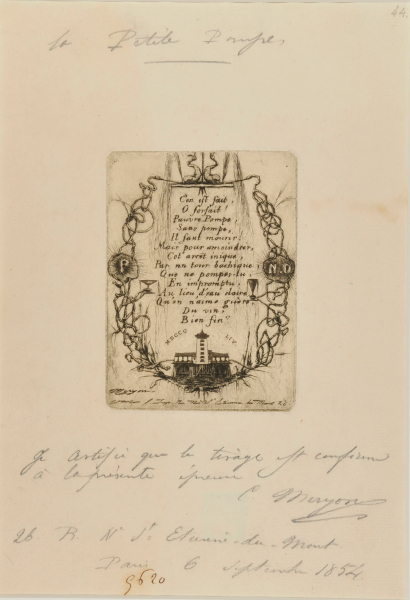 44.
la Petite Pompe,
C'en est fait,
O forfait!
Pauvre Pompe,
Sans pompe,
Il faut mourir!
Mais pour amoindrir,
Cet arrêt inique,
Par un tour bachique,
Que ne pompes-tu,
En impromptu,
Au lieu d'eau claire
Qu'on n'aime guère
Du vin,
Bien fin?
P
N.D
MDCCC LIV.
Je certifie que le tirage est conforme
à la présente épreuve
C. Meryon
26. R. Nve St. Etienne-du-Mont.
Paris 6 Septembre 1854
9620